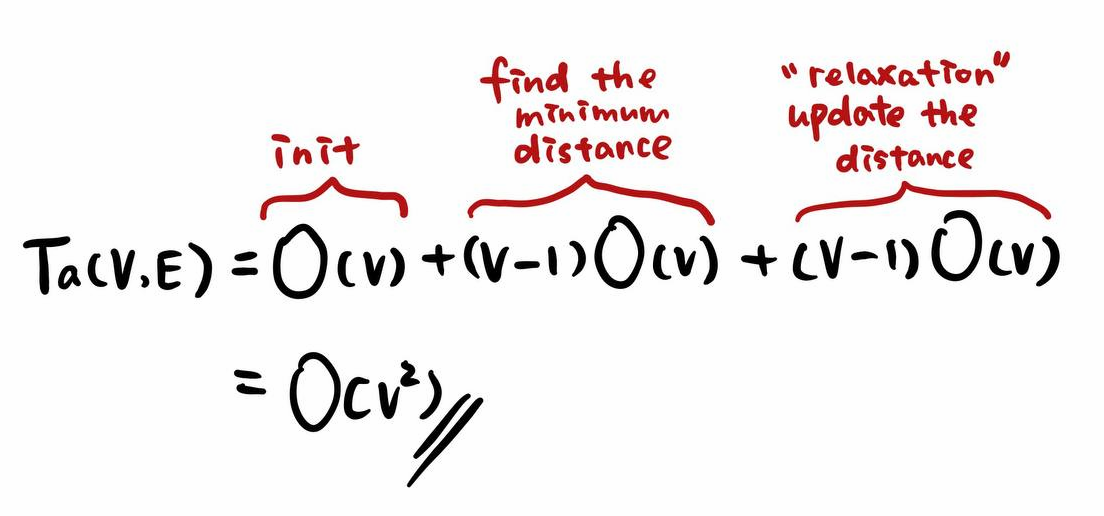 find the
minimum
distance
"relaxation"
update the
distance
init
Ta(V,E) = O(V) + (V-1) O(V) + (V-1) O(V)
= O(V²)